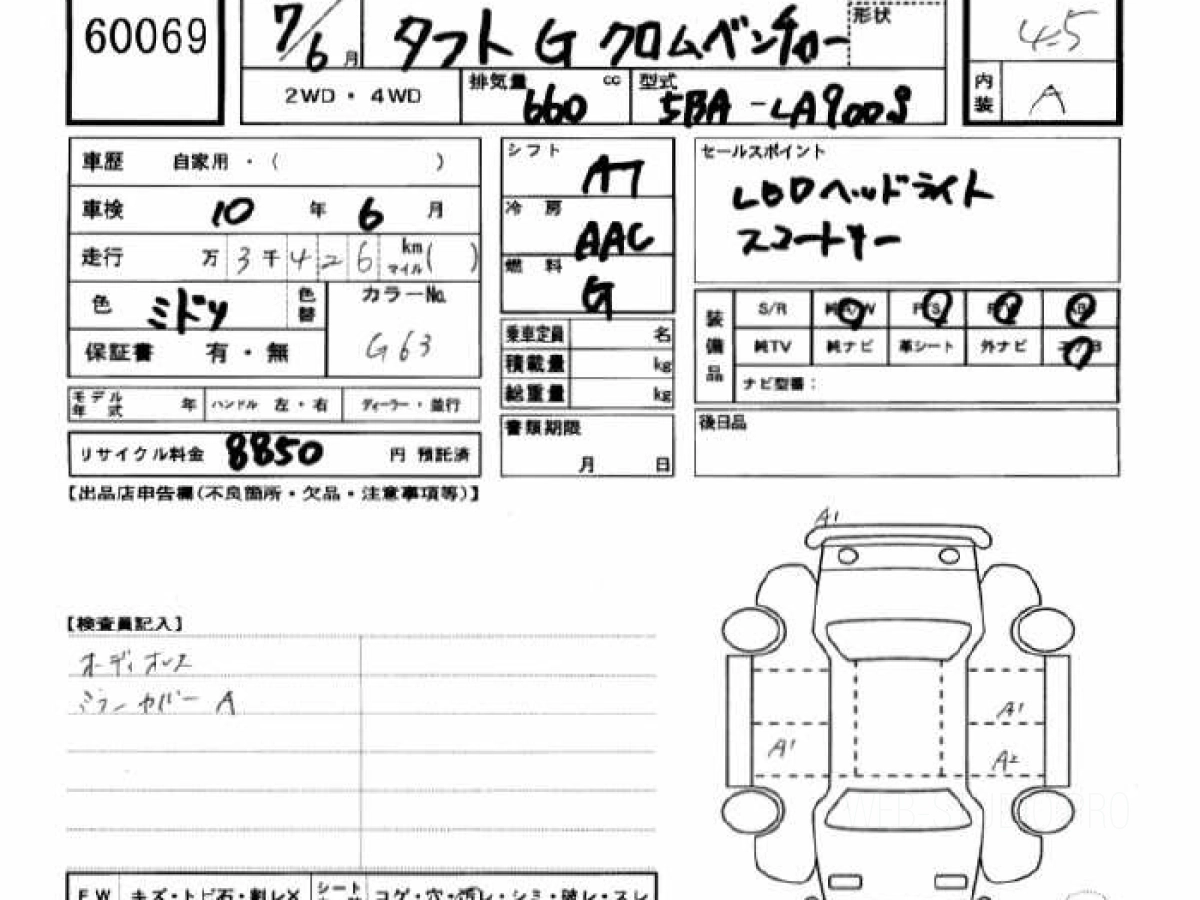 60069
7/6月 タフト G クロムベンチャー 形状
4.5
2WD・4WD 排気量 660 cc 型式 5BA-LA900S
内装 A
車歴 自家用・( )
車検 10 年 6 月
走行 万 3 千 4 2 6 km マイル ( )
色 ミドリ 色替 カラーNo. G63
保証書 有・無
モデル年式 年 ハンドル 左・右 ディーラー・並行
リサイクル料金 8850 円 預託済
シフト AT
冷房 AAC
燃料 G
乗車定員 名
積載量 kg
総重量 kg
書類期限
月 日
セールスポイント
LEDヘッドライト
スマートキー
装備品 S/R
純TV 純ナビ 革シート 外ナビ
ナビ型番:
後日品
【出品店申告欄(不良箇所・欠品・注意事項等)】
A1
【検査員記入】
オーディオレス
ミラーカバー A
A1
A1
A2
FW キズ・トビ石・割レX シート コゲ・穴・汚レ・シミ・破レ・スレ